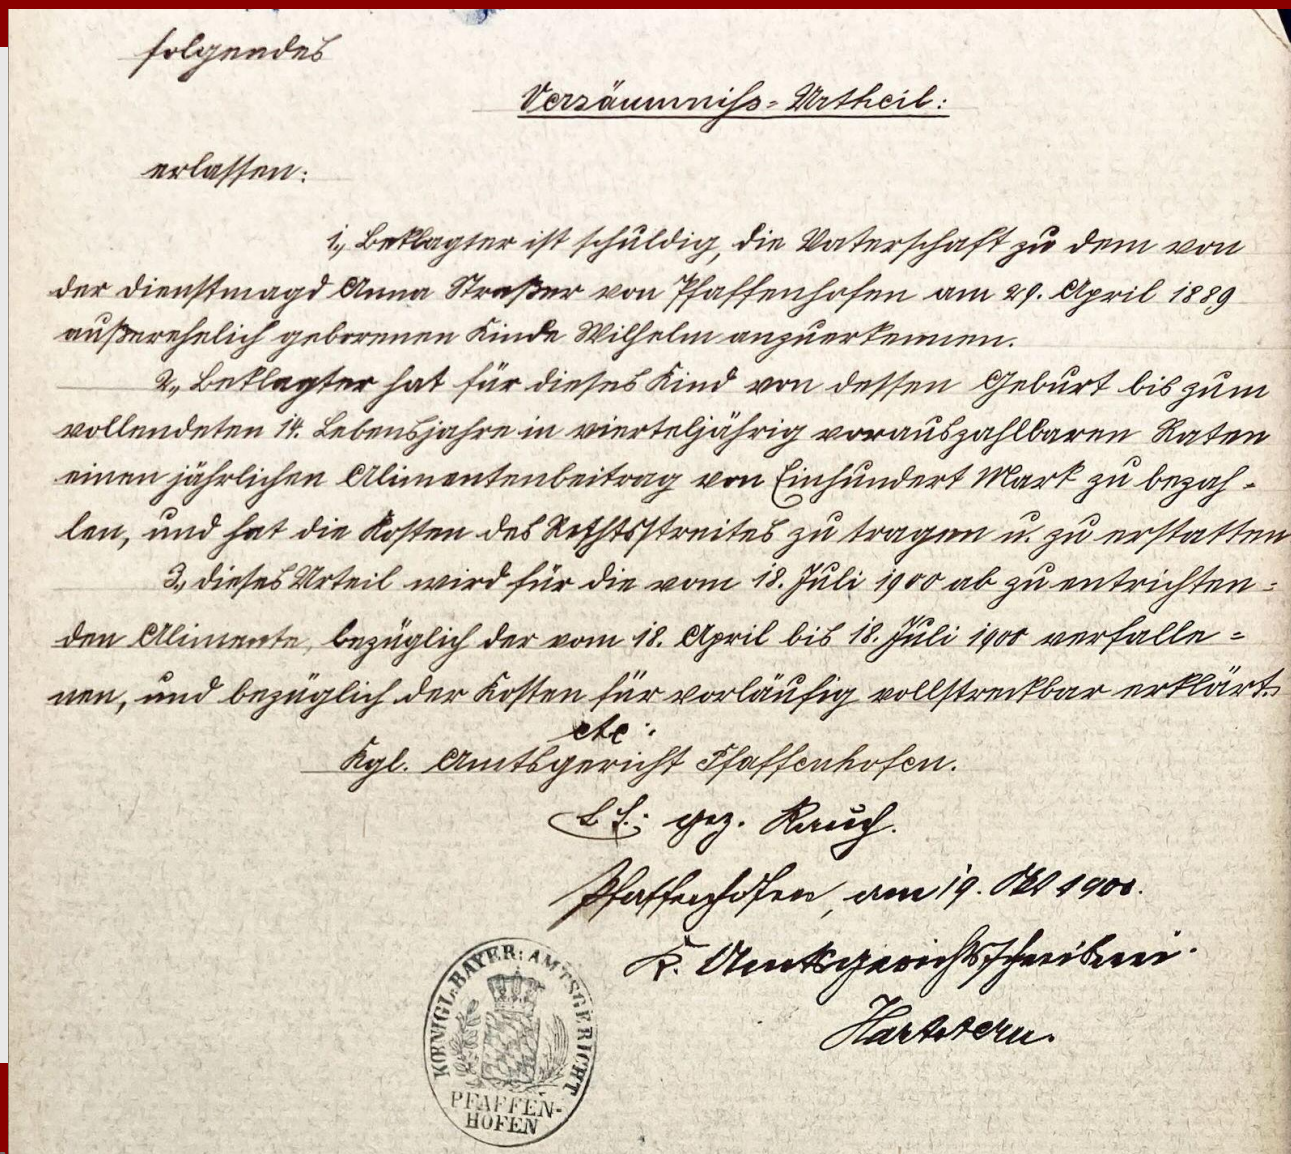 folgendes
Versäumniss-Urtheil:
erlassen:
1, Beklagter ist schuldig, die Vaterschaft zu dem von
der Dienstmagd Anna Straßer von Pfaffenhofen am 29. April 1889
außerehelich geborenen Kinde Wilhelm anzuerkennen.
2, Beklagter hat für dieses Kind von dessen Geburt bis zum
vollendeten 14. Lebensjahre in vierteljährig vorauszahlbaren Raten
einen jährlichen Alimentenbeitrag von Einhundert Mark zu bezah-
len, und hat die Kosten des Rechtsstreites zu tragen u. zu erstatten
3, dieses Urteil wird für die vom 18. Juli 1900 ab zu entrichten-
den Alimente, bezüglich der vom 18. April bis 18. Juli 1900 verfalle-
nen, und bezüglich der Kosten für vorläufig vollstreckbar erklärt.
etc:
Kgl. Amtsgericht Pfaffenhofen.
L. S. gez. Rauch.
Pfaffenhofen, am 19. Okt 1900.
K. Amtsgerichtsschreiberei.
KŒNIGL. BAYER: AMTSGERICHT
PFAFFEN-
HOFEN